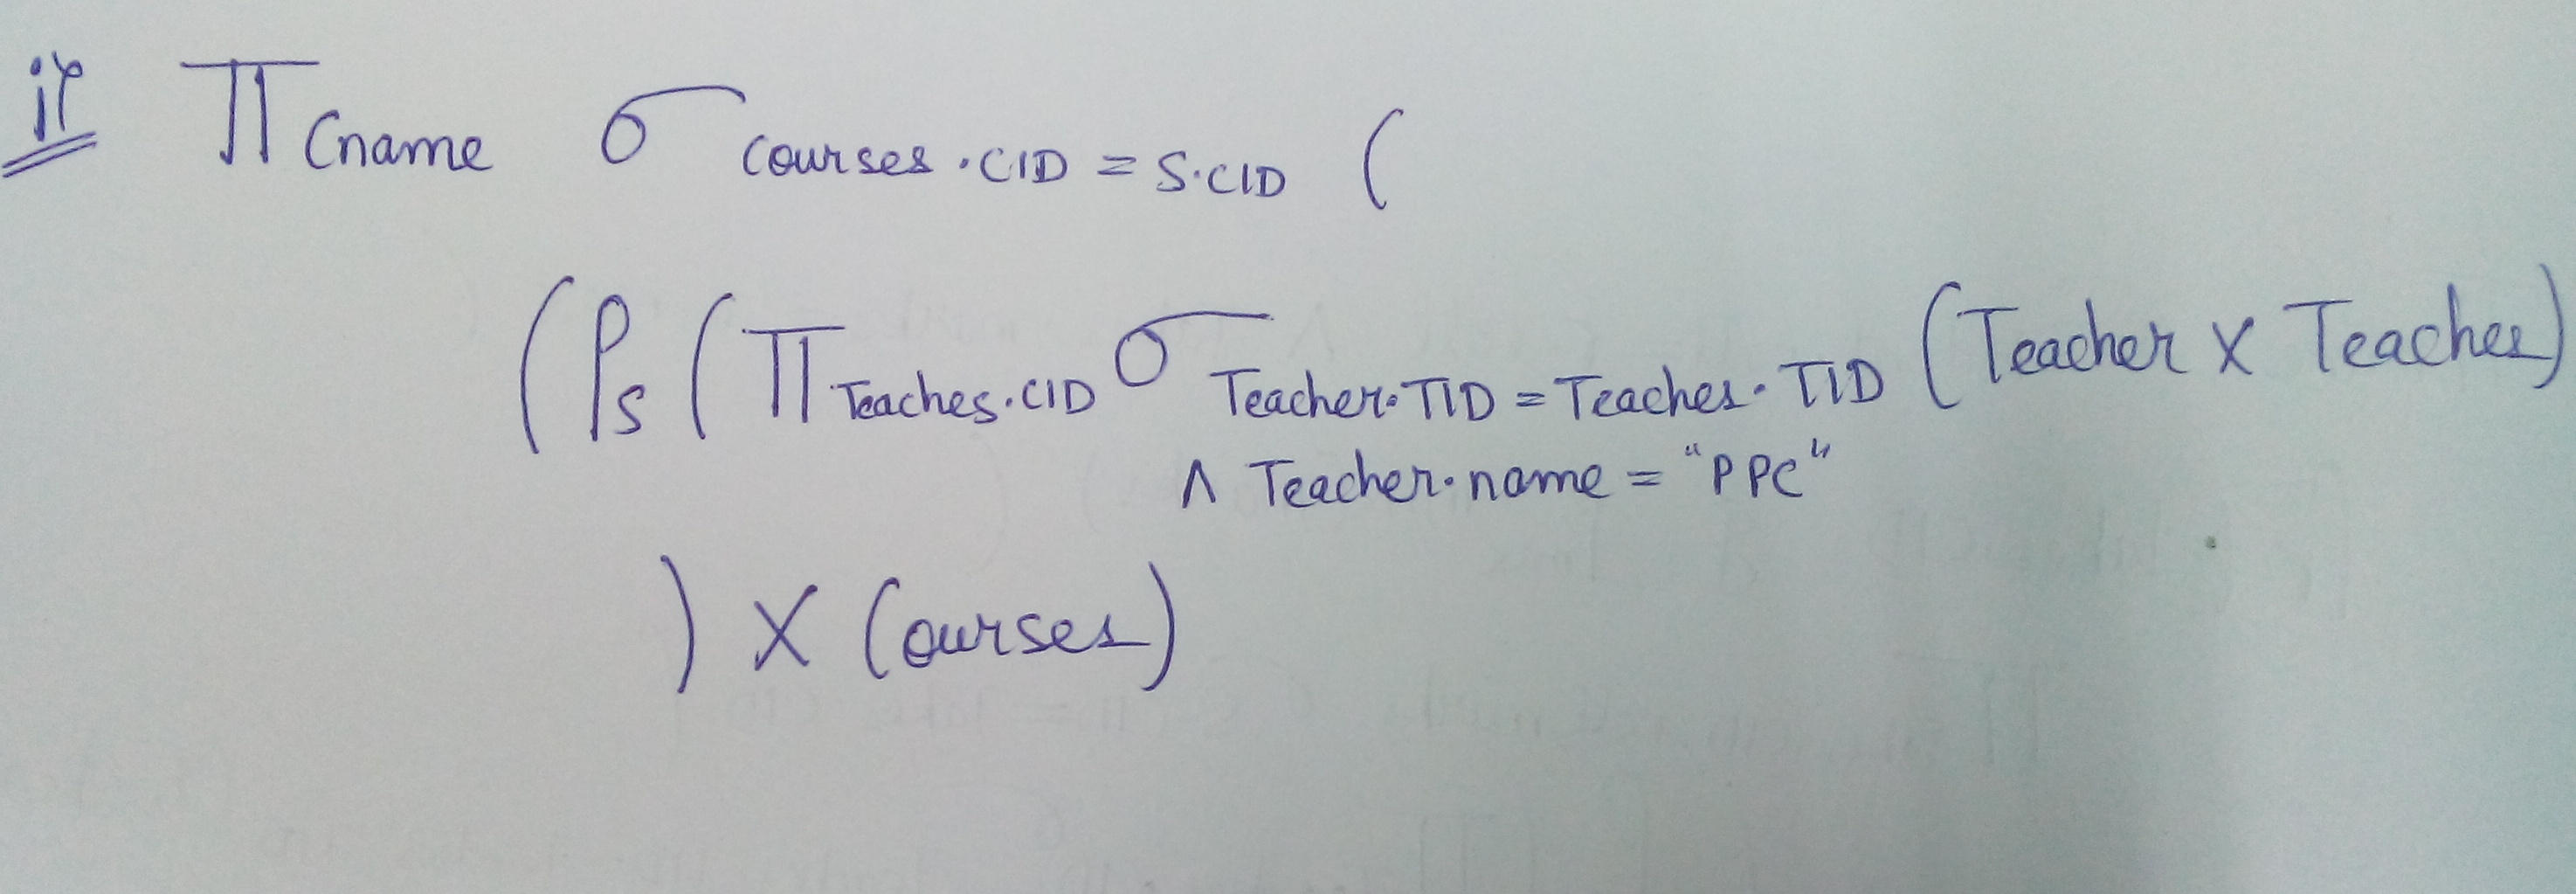 i) Π Cname σ courses.CID = S.CID (
(ρs (Π Teaches.CID σ Teacher.TID = Teaches.TID (Teacher X Teaches)
∧ Teacher.name = "PPC"
) X Courses)